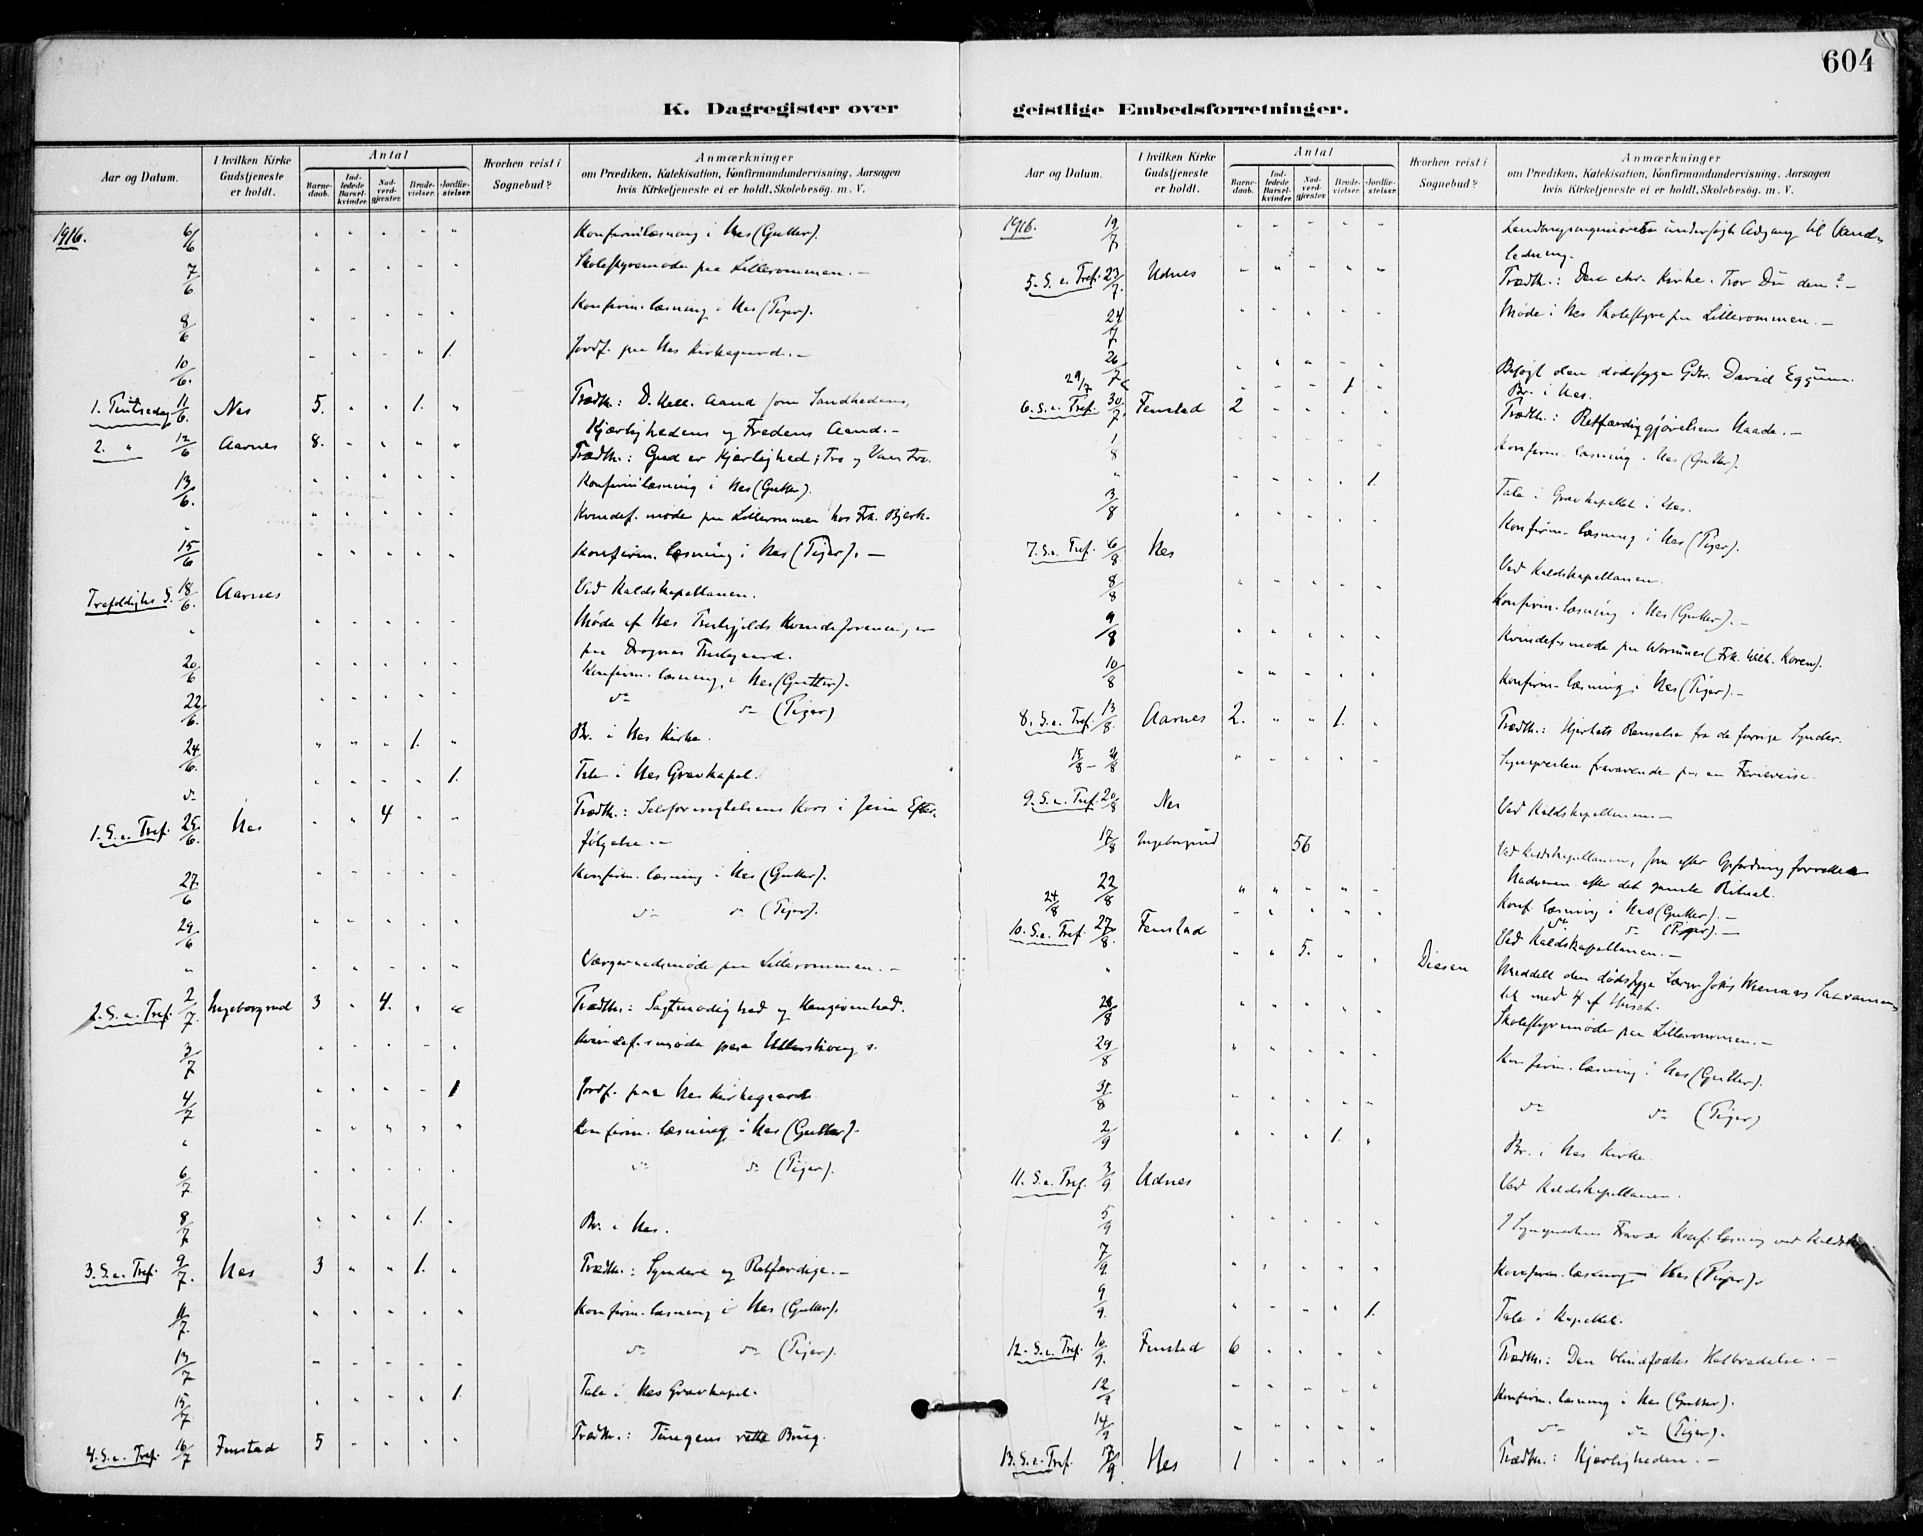 604
K. Dagregister over geistlige Embedsforretninger.
Aar og Datum.
I hvilken Kirke Gudstjeneste er holdt.
Antal
Barne-daab.
Ind-ledede Barsel-kvinder.
Nad-verd-gjester.
Brude-vielser.
Jordfæ-stelser.
Hvorhen reist i Sognebud?
Anmærkninger
om Prædiken, Katekisation, Konfirmandundervisning, Aarsagen
hvis Kirketjeneste ei er holdt, Skolebesøg. m. V.
1916. 6/6 " " " " " Konfirm.læsning i Nes (Gutter).
7/6 " " " " " Skolestyremøde paa Lillerommen. —
8/6 " " " " " Konfirm. læsning i Nes (Piger).
10/6. " " " " 1. Jordf. paa Nes Kirkegaard. —
1. Pintsedag 11/6. Nes 5. " " 1. " Prædik.: D. Hell. Aand som Sandhedens,
Kjærlighedens og Fredens Aand. —
2. " 12/6 Aarnes 8. " " " " Prædik.: Gud er Kjærlighed; Tro og Vantro.
13/6. " " " " " Konfirm.læsning i Nes (Gutter).
" " " " " " Kvindef. møde paa Lillerommen hos Frk. Bjerk.
15/6 " " " " " Konfirm. læsning i Nes (Piger). —
Trefoldighs S. 18/6. Aarnes Ved Kaldskapellanen.
" " " " " " Møde af Nes Kvindeforeninger
paa Dragnes
20/6 " " " " " Konfirm. læsning i Nes (Gutter).
22/6. " " " " " do do (Piger)
24/6. " " " 1. " Br. i Nes Kirke.
do " " " " 1. Tale i Nes Gravkapel.
1. S. e. Tref. 25/6. Nes " " 4 " " Prædik.: Selvfornegtelsens Kors i Jesu Efter-
følgelse. —
27/6 " " " " " Konfirm. læsning i Nes (Gutter).
29/6 " " " " " do do (Piger).
" " " " " " Værgeraadsmøde paa Lillerommen. —
2. S. e. Tref. 2/7. Ingeborgrud 3 " 4. " " Prædik.: Sagtmodighed og Hengivenhed.
3/7 " " " " " Kvindef.smøde paa
4/7 " " " " 1 Jordf. paa Nes Kirkegaard.
" " " " " " Konfirm. læsning i Nes (Gutter).
6/7 " " " " " do do (Piger).
8/7 " " " 1. " Br. i Nes.
3. S. e. Tref. 9/7. Nes 3 " " 1. " Prædik.: Syndere og Retfærdige. —
11/7. " " " " " Konfirm. læsning i Nes (Gutter).
13/7 " " " " " do do (Piger).
15/7 " " " " 1. Tale i Nes Gravkapel.
4. S. e. Tref. 16/7 Fenstad 5 " " " " Prædik.: Tungens rette Brug.
Aar og Datum.
I hvilken Kirke Gudstjeneste er holdt.
Antal
Barne-daab.
Ind-ledede Barsel-kvinder.
Nad-verd-gjester.
Brude-vielser.
Jordfæ-stelser.
Hvorhen reist i Sognebud?
Anmærkninger
om Prædiken, Katekisation, Konfirmandundervisning, Aarsagen
hvis Kirketjeneste ei er holdt, Skolebesøg. m. V.
1916. 19/7 " " " " " undersøgte Adgang til Vand-
ledning.
5. S. e. Tref. 23/7. Udnes " " " " " Prædik.: Den chr. Kirke. Tror Du den? —
24/7 " " " " " Møde i Nes Skolestyre paa Lillerommen. —
26/7 " " " " " Besøgt den dødssyge Gdbr. David
29/7 " " " 1 " Br. i Nes.
6. S. e. Tref. 30/7. Fenstad 2 " " " " Prædik.: Retfærdiggjørelsens Naade. —
1/8 " " " " " Konfirm. læsning i Nes (Gutter).
" " " " " 1. Tale i Gravkapellet i Nes.
3/8 " " " " " Konfirm. læsning i Nes (Piger).
7. S. e. Tref. 6/8 Nes Ved Kaldskapellanen.
8/8 " " " " " Konfirm. læsning i Nes (Gutter). —
9/8 " " " " " Kvindef.smøde paa Wormnes (Frk. Wilh. Koren).
10/8 " " " " " Konfirm. læsning i Nes (Piger). —
8. S. e. Tref. 13/8. Aarnes 2. " " 1. " Prædik.: Hjertets Renselse fra de forrige Synder.
15/8 – 21/8 " " " " " Sognepresten fraværende paa en Feriereise.
9. S. e. Tref. 20/8 Nes Ved Kaldskapellanen. —
17/8 Ingeborgrud 56 Ved Kaldskapellanen, som efter Opfordring forrettede
Nadveren efter det gamle Ritual.
22/8 " " " " " Konf. læsning i Nes (Gutter). —
24/8 " " " " " do do (Piger). —
10. S. e. Tref. 27/8. Fenstad Ved Kaldskapellanen. —
" " " 5. " " Diesen Meddelt den dødssyge Sacramen-
tet med 4 af Huset.
28/8 " " " " " Skolestyremøde paa Lillerommen. —
29/8 " " " " " Konfirm. læsning i Nes (Gutter).
31/8 " " " " " do do (Piger)
2/9 " " " 1. " Br. i Nes Kirke.
11. S. e. Tref. 3/9. Udnes Ved Kaldskapellanen.
5/9 " " " " " I Sogneprestens Fravær Konf. læsning ved
7/9 " " " " " Konfirm. læsning i Nes (Piger).
9/9. " " " " 1. Tale i Kapellet.
12. S. e. Tref. 10/9. Fenstad 6 " " " " Prædik.: Den blindfødtes Helbredelse. —
12/9 " " " " " Konfirm. læsning i Nes (Gutter).
14/9 " " " " " do do (Piger).
13. S. e. Tref. 17/9. Nes 1 " " " " Prædik.: Kjærligheden. —